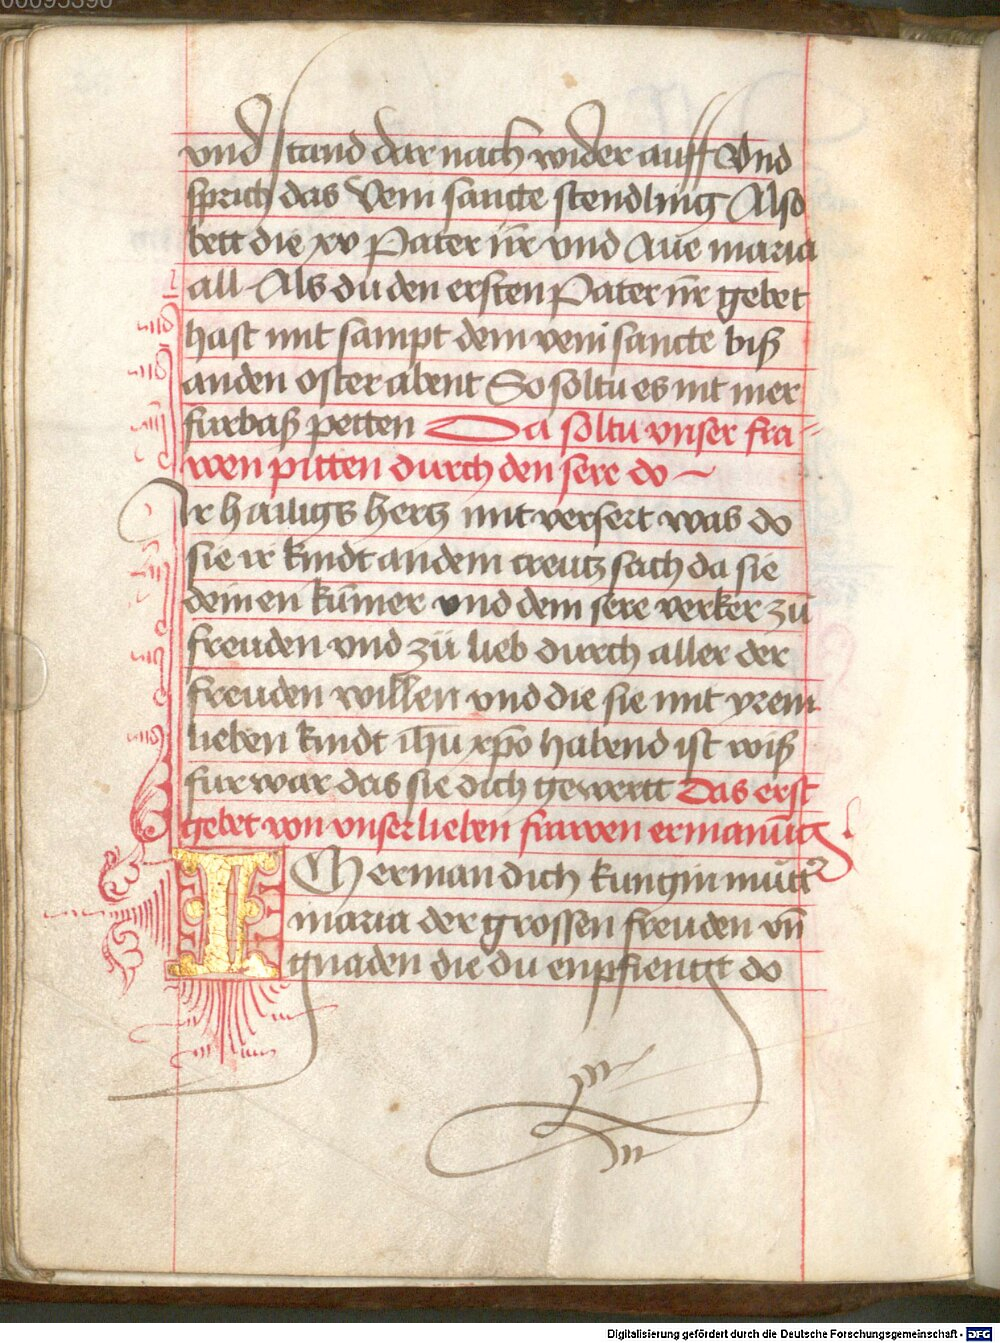 00095390
vnd stand dar nach wider auff Vnd
sprich das Veni sancte stendling Also
bett die xv Pater nr̄ vnd Aue maria
all Als du den ersten Pater nr̄ gebet
hast mit sampt dem veni sancte biß
an den oster abent So soltu es nit mer
furbaß petten Da soltu vnser fra-
wen pitten durch den sere do
Ir hailigs hertz mit versert was do
sie ir kindt an dem creutz sach da sie
deinen kūmer vnd dein sere verker zu
freuden vnd zü lieb durch aller der
freuden willen vnd die sie mit yrem
lieben kindt ihu xpo habend ist wiß
fur war das sie dich gewertt Das erst
gebet von vnser lieben frawen ermanūg
ICh erman dich kungin mütr
maria der grossen freuden vn̄
gnaden die du enpfiengt do
Digitalisierung gefördert durch die Deutsche Forschungsgemeinschaft - DFG